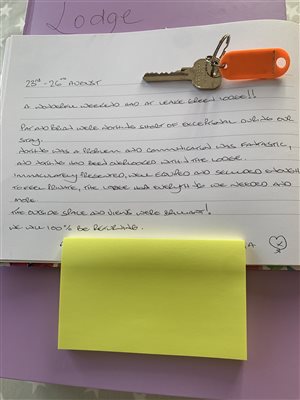 Lodge
23rd - 26th AUGUST
A WONDERFUL WEEKEND AND AT LEAKE GREEN LODGE!!
PAT AND BRIAN WERE NOTHING SHORT OF EXCEPTIONAL DURING OUR
STAY.
NOTHING WAS A PROBLEM AND COMMUNICATION WAS FANTASTIC,
AND NOTHING HAD BEEN OVERLOOKED WITHIN THE LODGE.
IMMACULATELY PRESENTED, WELL EQUIPED AND SECLUDED ENOUGH
TO FEEL PRIVATE, THE LODGE HAD EVERYTHING WE NEEDED AND
MORE.
THE OUTSIDE SPACE AND VIEWS WERE BRILLIANT!
WE WILL 100% BE RETURNING.